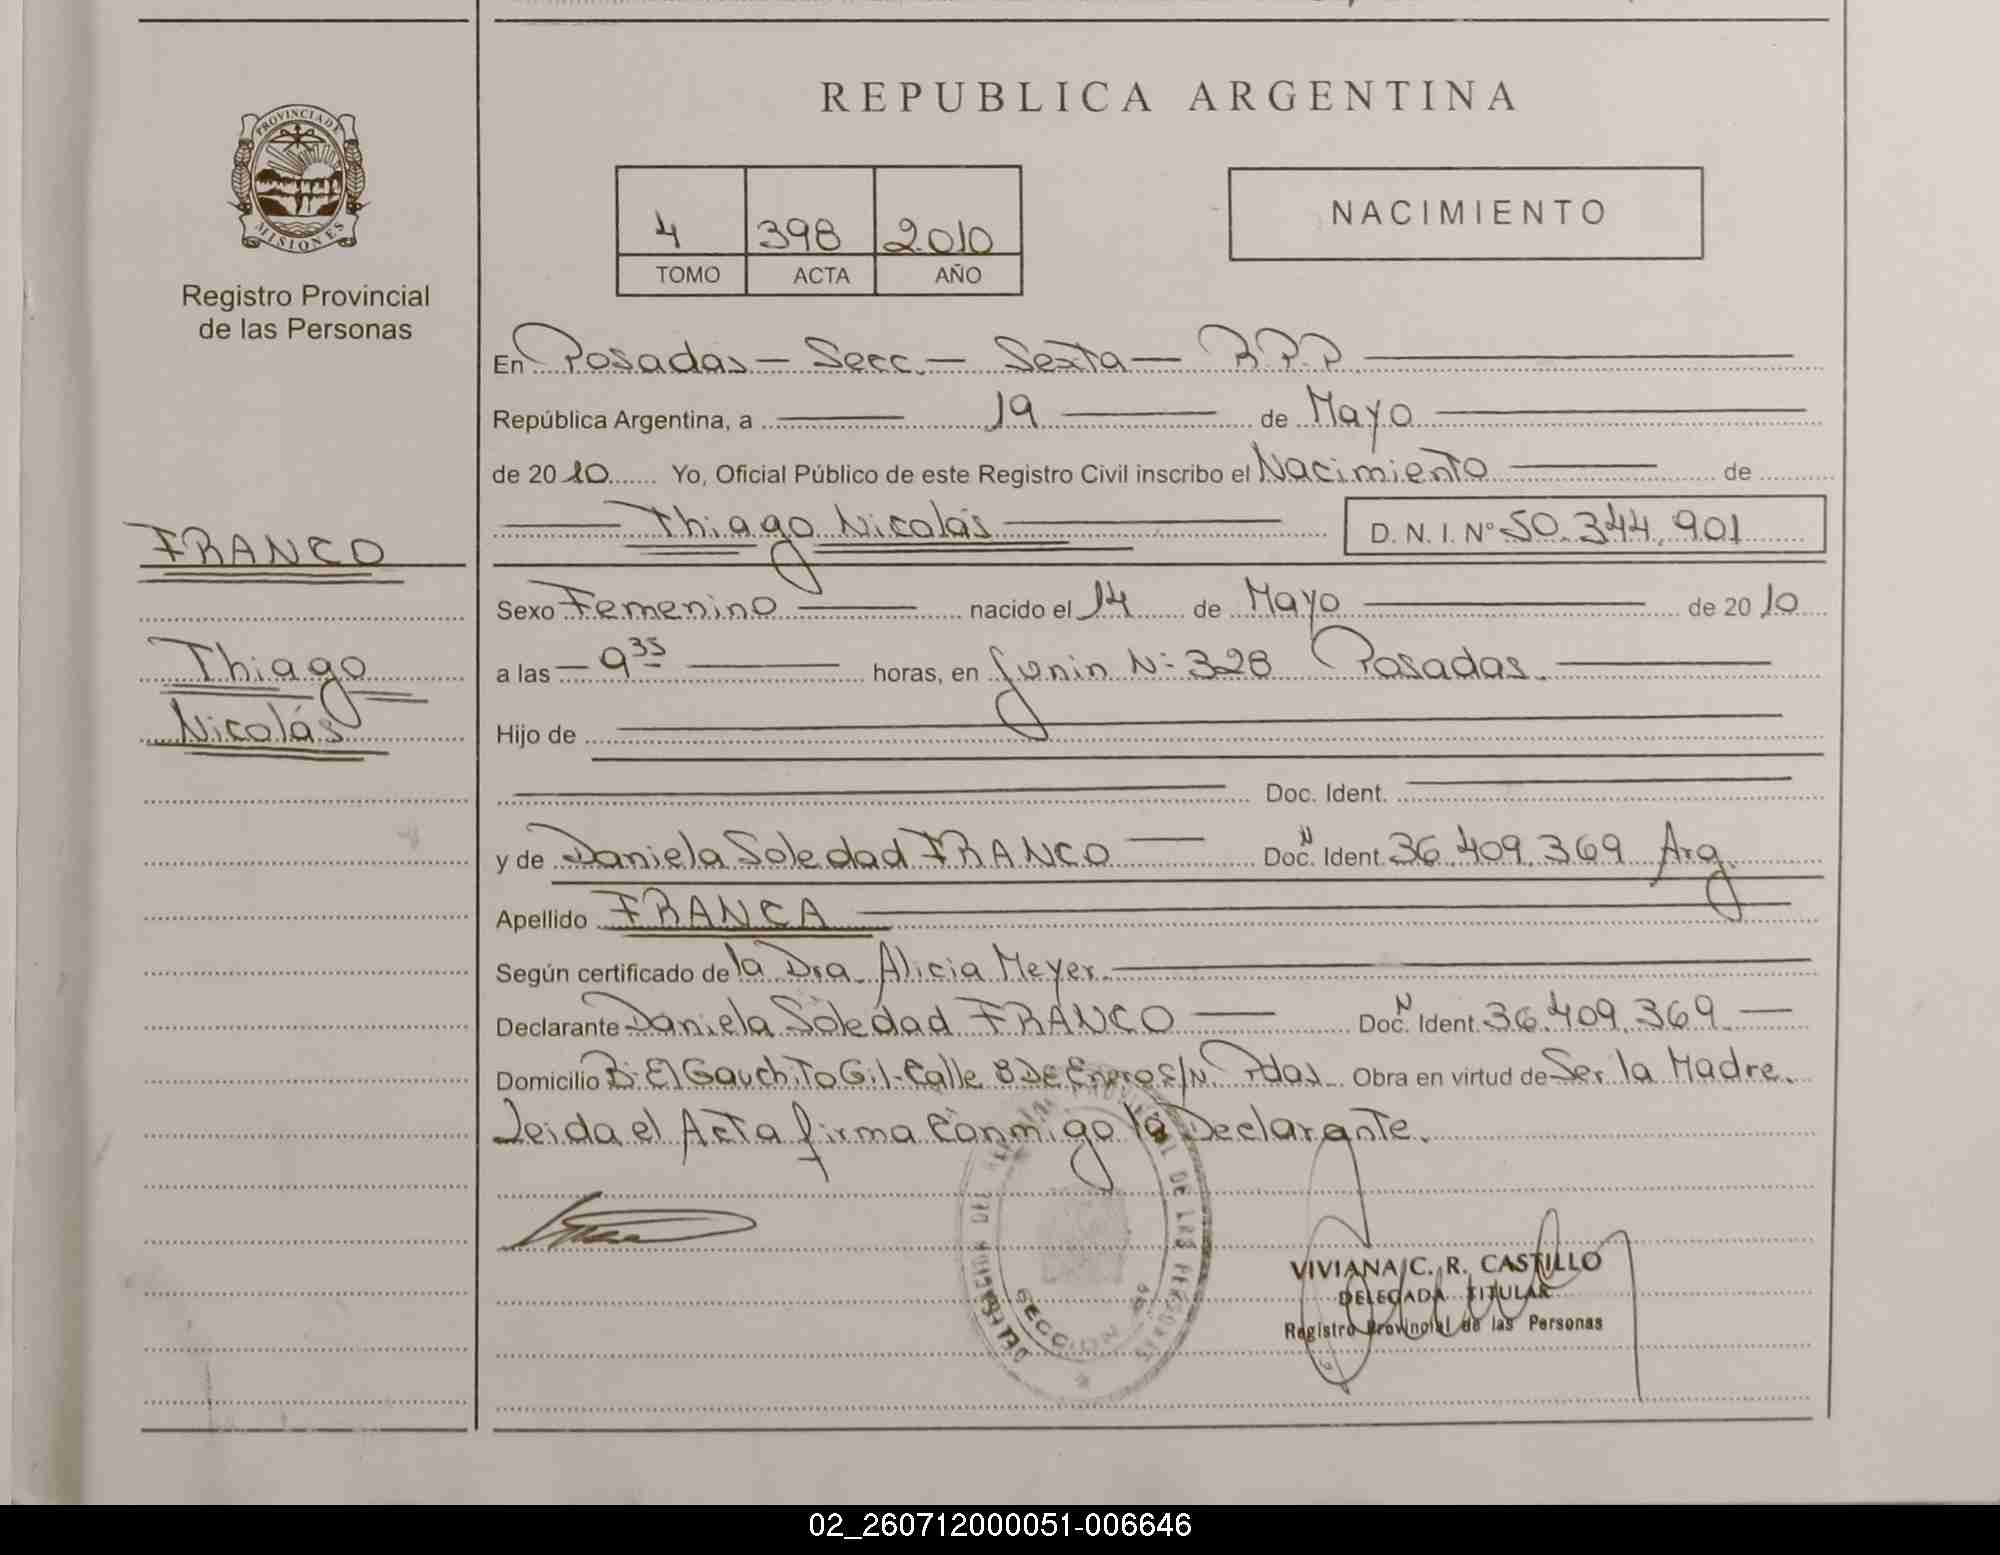 REPUBLICA ARGENTINA
PROVINCIA DE
MISIONES
Registro Provincial
de las Personas
4 398 2010
TOMO ACTA AÑO
NACIMIENTO
En Posadas – Secc. – Sexta – R.P.P
República Argentina, a 19 de Mayo
de 2010 Yo, Oficial Público de este Registro Civil inscribo el Nacimiento de
Thiago Nicolás D. N. I. Nº 50.344.901
FRANCO
Thiago
Nicolás
Sexo Femenino nacido el 14 de Mayo de 2010
a las – 9 35 horas, en Junin Nº 328 Posadas.
Hijo de
Doc. Ident.
y de Daniela Soledad FRANCO Doc. N Ident. 36.409.369 Arg.
Apellido FRANCA
Según certificado de la Dra. Alicia Meyer.
Declarante Daniela Soledad FRANCO Doc. N Ident. 36.409.369
Domicilio Bº El Gauchito Gil - Calle 8 De Enero S/N. Pdas. Obra en virtud de Ser la Madre.
Leida el Acta firma Conmigo la Declarante.
PROVINCIAL DE LAS PERSONAS
SECCION 6ª
VIVIANA C. R. CASTILLO
DELEGADA TITULAR
Registro Provincial de las Personas
02_260712000051-006646